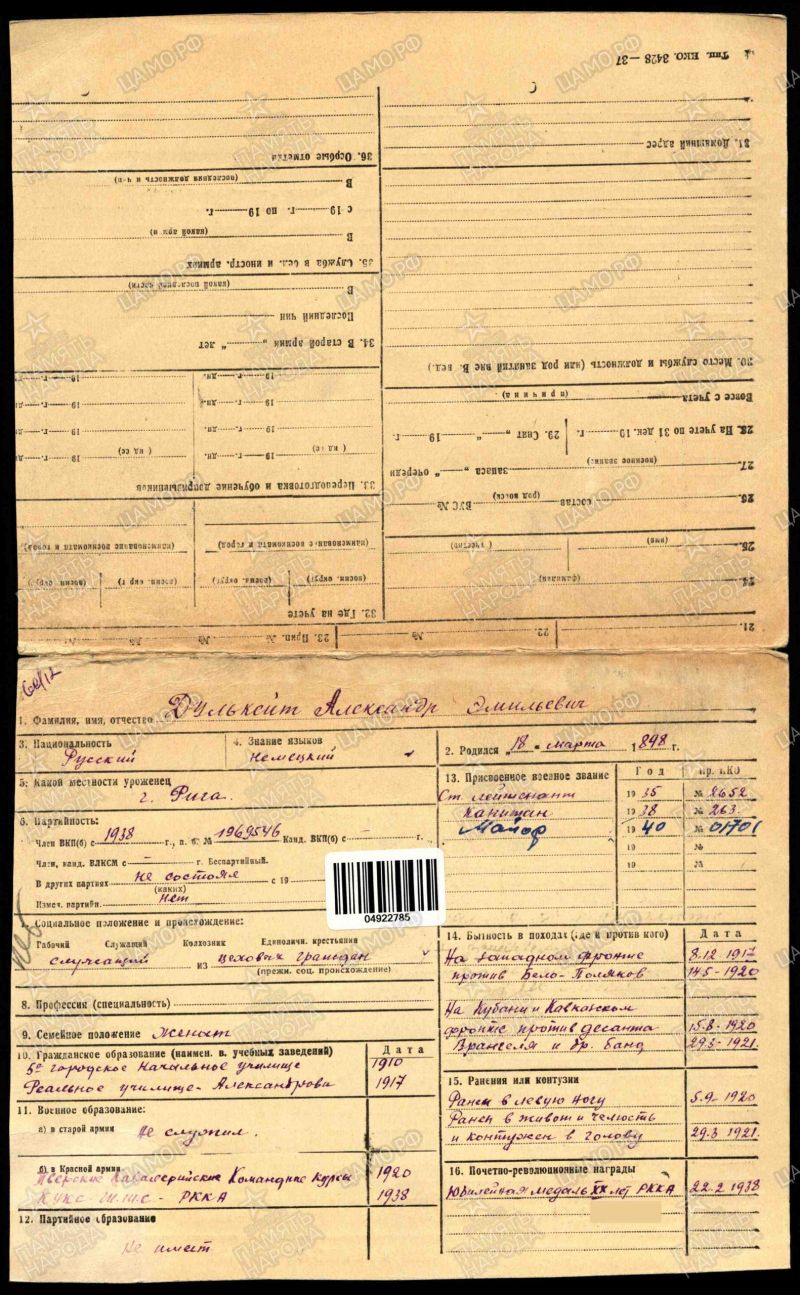 Тип. НКО. 3428—37
31. Домашний адрес
30. Место службы и должность (или род занятий вне В. вед.)
Вовсе с учета
(причина)
28. На учете по 31 дек. 19 г. 29. Снят „ “ 19 г.
27. запаса „ “ очереди
(военное звание)
26. состав ВУС №
(род войск)
25.
(имя) (отчество)
24.
(фамилия)
21. № 22. № 23. Прип. №
36. Особые отметки
В
(последняя должность и ч-ц)
с 19 г. по 19 г.
В
(какой армии)
35. Служба в бел. и иностр. армиях
В
(какой последней части)
Последний чин
34. В старой армии „ “ лет
19 дн. 19
19 дн. 19
19 дн. 19
19 дн. 19
33. Переподготовка и обучение допризывников
(наименование военкомата и город) (наименование военкомата и город)
(воен. округ) (воен. округ) (воен. округ) (воен. округ)
32. Где на учете
1. Фамилия, имя, отчество Дулькейт Александр Эмильевич
3. Национальность Русский
4. Знание языков немецкий
2. Родился „18“ марта 1898 г.
5. Какой местности уроженец
г. Рига.
6. Партийность:
Член ВКП(б) с 1938 г., п. б. № 1969546 Канд. ВКП(б) с — г.
Член, канд. ВЛКСМ с — г. Беспартийный.
В других партиях не состоял с 19
(каких)
Измен. партийн. Нет
04922785
7. Социальное положение и происхождение:
Рабочий Служащий Колхозник Единоличн. крестьянин
служащий из цеховых граждан
(прежн. соц. происхождение)
8. Профессия (специальность)
9. Семейное положение Женат
10. Гражданское образование (наимен. в. учебных заведений) Дата
5е городское Начальное училище 1910
Реальное училище Александрова 1917
11. Военное образование:
а) в старой армии Не служил.
б) в Красной армии
Тверские Кавалерийские Командные Курсы 1920
КУКС - РККА 1938
12. Партийное образование
Не имеет
13. Присвоенное военное звание Год Пр. НКО
Ст лейтенант 1935 № 2652
Капитан 1938 № 263
Майор 1940 № 01701
19 №
19 №
14. Бытность в походах (где и против кого) Дата
На западном фронте 8.12-1917
против Бело-Поляков 14.5-1920
На Кубани и Кавказском
фронте против десанта 15.8-1920
Врангеля и др. банд 29.5-1921.
15. Ранения или контузии
Ранен в левую ногу 5.9-1920
Ранен в живот и челюсть
и контужен в голову 29.3 1921.
16. Почетно-революционные награды
Юбилейная медаль XX лет РККА 22-2 1938
ПАМЯТЬ НАРОДА
ЦАМО.РФ